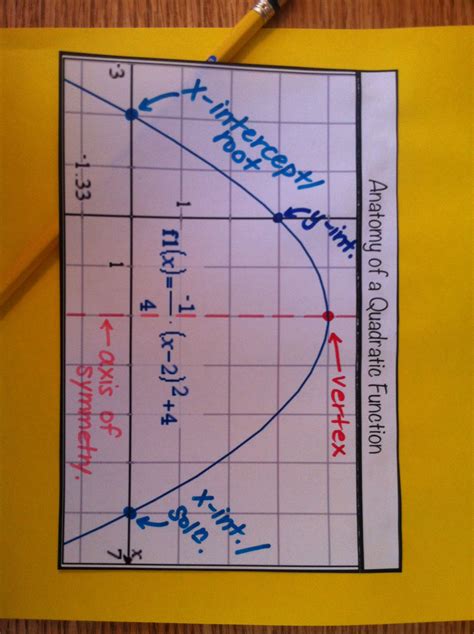 Anatomy of a Quadratic Function
-3
x-intercept/
root
y-int.
← vertex
1
-1.33
1
f1(x)=-1/4·(x-2)²+4
x-int./
soln.
← axis of
symmetry.
x
7